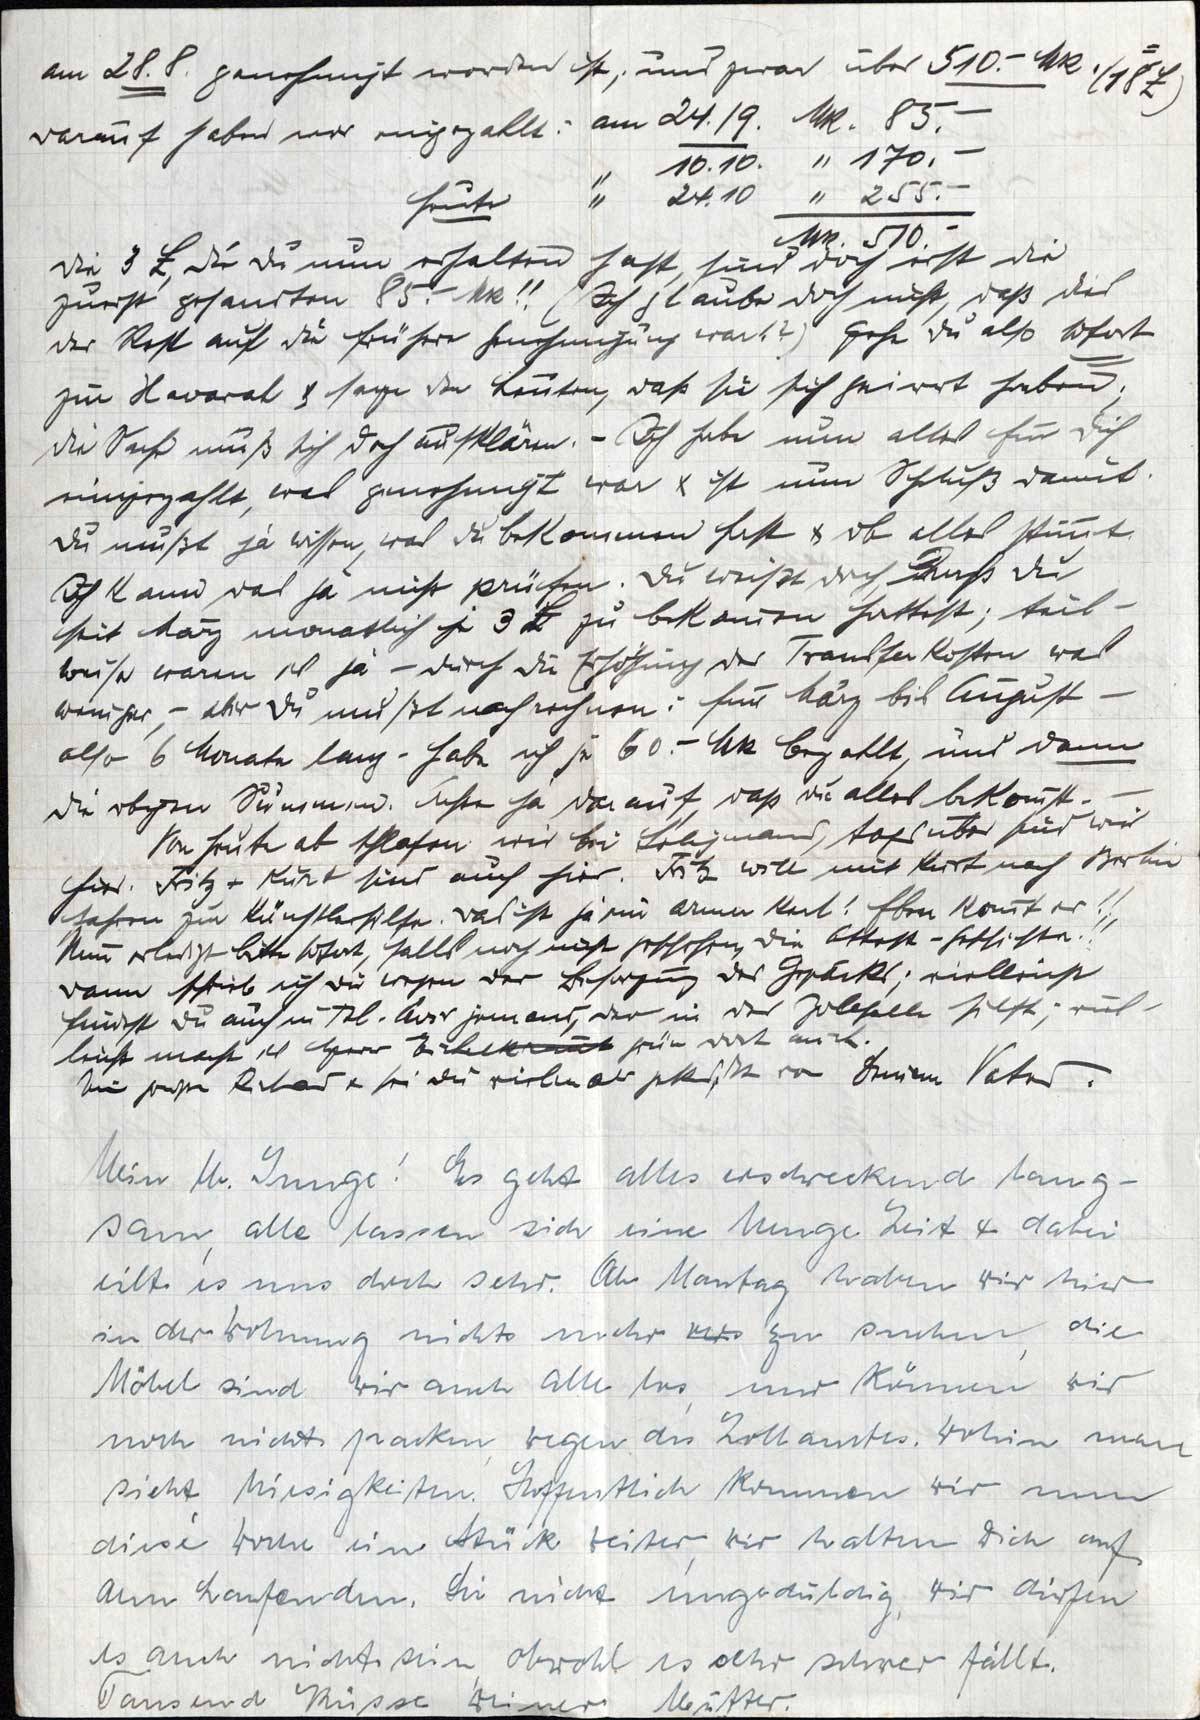 am 28.8. genehmigt worden ist, und zwar über 510.- Mk. (18 £)
darauf haben wir eingezahlt: am 24./9. Mk. 85.-
" 10.10. " 170.-
heute " 24.10 " 255.-
Mk. 510.-
die 3 £, die Du nun erhalten hast, sind doch erst die
zuerst gesandten 85.- Mk!! (Ich glaube doch nicht, daß das
der Rest auf die frühere Genehmigung war??) Gehe Du also sofort
zur Havarah & sage den Leuten, daß sie sich geirrt haben;
die Sache muß sich doch aufklären. - Ich habe nun alles für Dich
eingezahlt, was genehmigt war & ist nun Schluß damit.
Du mußt ja wissen, was Du bekommen hast & ob alles stimmt.
Ich kann das ja nicht prüfen. Du weißt doch, daß Du
seit März monatlich je 3 £ zu bekommen hattest; teil-
weise waren es ja - durch die Erhöhung der Transferkosten was
weniger, - aber Du mußt nachrechnen: für März bis August -
also 6 Monate lang - habe ich je 60.- Mk bezahlt, und dann
die obigen Summen. Achte ja darauf, daß Du alles bekommst. -
Von heute ab schlafen wir bei Seligmanns, tagsüber sind wir
hier. Fritz & Kurt sind auch hier. Fritz will mit Kurt nach Berlin
fahren zur Künstlerhilfe. Das ist ja ein armer Kerl! Eben kommt er!!
Nun erledigt bitte sofort, falls noch nicht geschehen, die Attest-Geschichte!!
Dann schrieb ich Dir wegen der Besorgung des Gepäcks; vielleicht
findest Du auch in Tel-Aviv jemand, der in der Zollhalle hilft; viel-
leicht macht es Herr grün doch auch.
Nun grüße & sei Du vielmals geküßt von Deinem Vater.
Mein lb. Junge! Es geht alles erschreckend lang-
sam, alle lassen sich eine Menge Zeit & dabei
eilt es uns doch sehr. Ab Montag haben wir hier
in der Wohnung nichts mehr zu suchen, die
Möbel sind wir auch alle los, nur können wir
noch nichts packen, wegen des Zollamtes. Wohin man
sieht Miesigkeiten. Hoffentlich kommen wir nun
diese Woche ein Stück weiter, wir halten Dich auf
dem Laufenden. Sei nicht ungeduldig, wir dürfen
es auch nicht sein, obwohl es sehr schwer fällt.
Tausend Küsse Deiner Mutter.